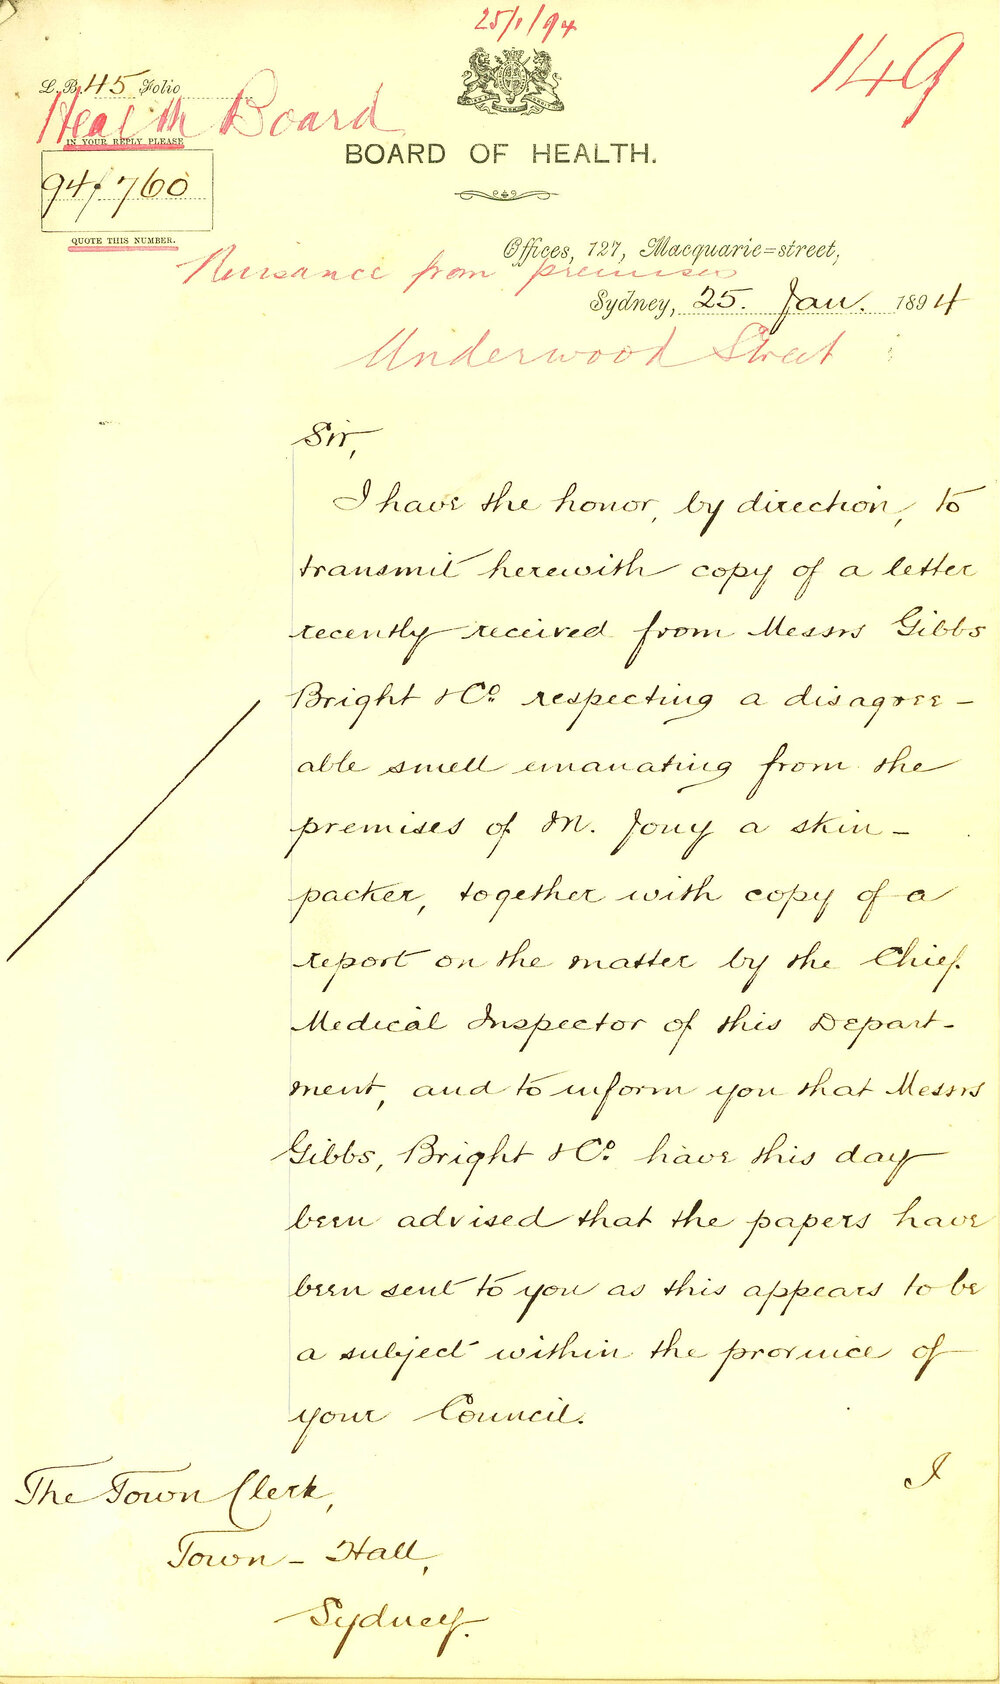 25/1/94
149
L.B. 45 Folio
Health Board
IN YOUR REPLY PLEASE
94/760
QUOTE THIS NUMBER.
BOARD OF HEALTH.
Offices, 127, Macquarie=street,
Nuisance from premises
Sydney, 25. Jan. 1894
Underwood Street
Sir,
I have the honor, by direction, to
transmit herewith copy of a letter
recently received from Messrs Gibbs
Bright & Co. respecting a disagree-
able smell emanating from the
premises of M. Jouy a skin-
packer, together with copy of a
report on the matter by the Chief
Medical Inspector of this Depart-
ment, and to inform you that Messrs
Gibbs, Bright & Co. have this day
been advised that the papers have
been sent to you as this appears to be
a subject within the province of
your Council.
I
The Town Clerk,
Town-Hall,
Sydney.